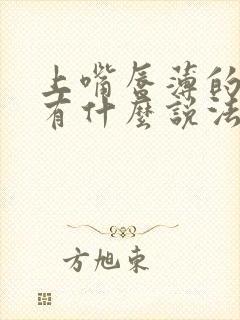 上嘴唇薄的
有什麼說法
方旭東